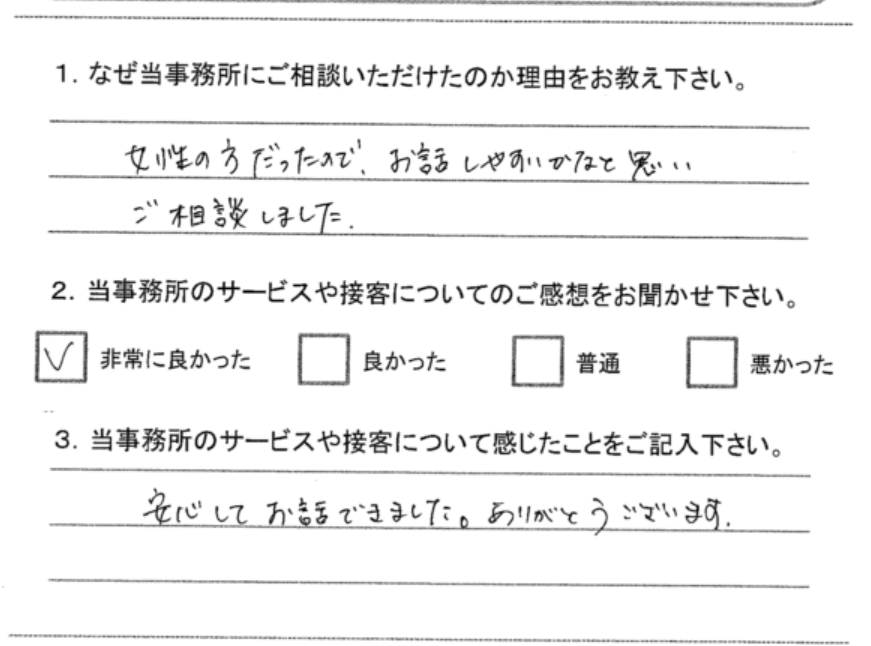 1. なぜ当事務所にご相談いただけたのか理由をお教え下さい。
女性の方だったので、お話しやすいかなと思い
ご相談しました.
2. 当事務所のサービスや接客についてのご感想をお聞かせ下さい。
非常に良かった 良かった 普通 悪かった
3. 当事務所のサービスや接客について感じたことをご記入下さい。
安心してお話できました。ありがとうございます.